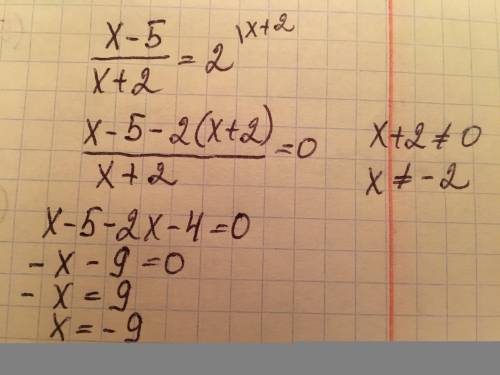 x-5/x+2 = 2 \x+2
x-5-2(x+2)/x+2 = 0
x+2≠0
x≠-2
x-5-2x-4=0
-x-9=0
-x=9
x=-9